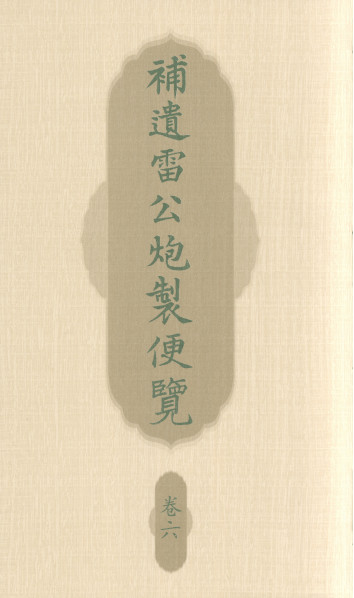 補遺雷公炮製便覽
卷六